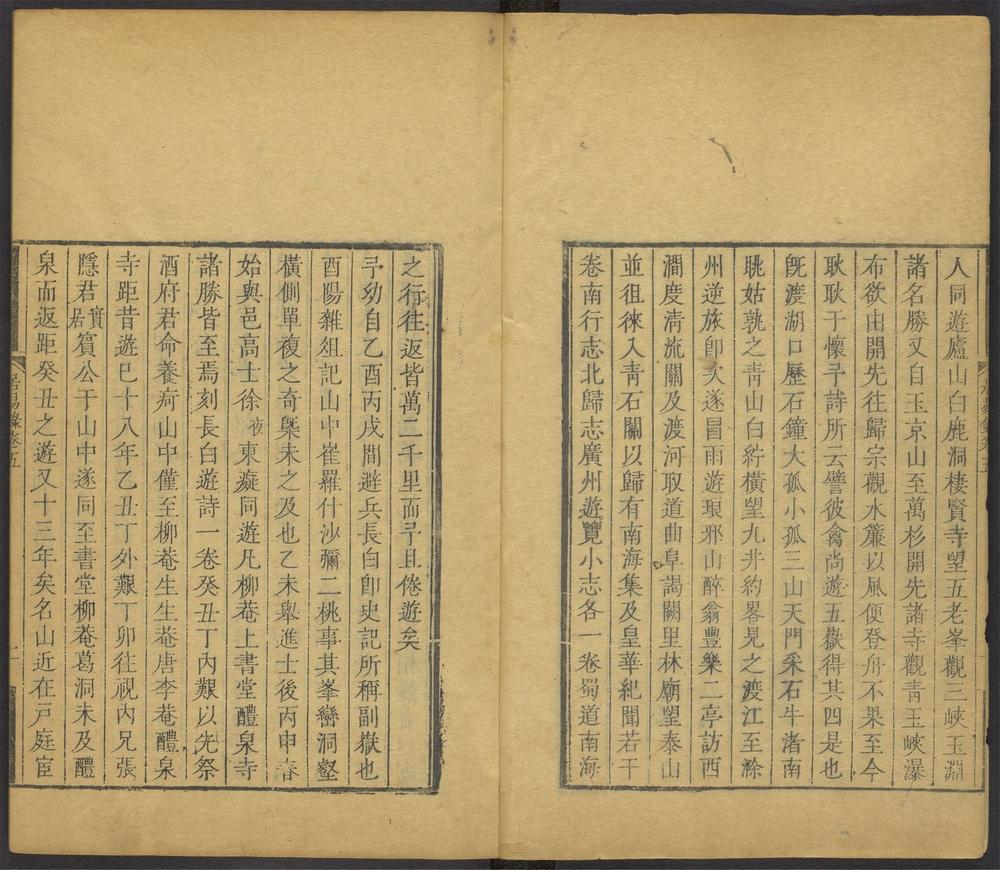 人同遊廬山白鹿洞棲賢寺望五老峯觀三峽玉淵
諸名勝又自玉京山至萬杉開先諸寺觀靑玉峽瀑
布欲由開先往歸宗觀水簾以風便登舟不果至今
耿耿于懷予詩所云譬彼禽尚遊五嶽得其四是也
旣渡湖口歷石鐘大孤小孤三山天門采石牛渚南
眺姑孰之靑山白紵橫望九井約畧見之渡江至滁
州逆旅卽次遂冒雨遊琅邪山醉翁豐樂二亭訪西
澗度淸流關及渡河取道曲阜謁闕里林廟望泰山
並徂徠入靑石關以歸有南海集及皇華紀聞若干
卷南行志北歸志廣州遊覽小志各一卷蜀道南海
之行往返皆萬二千里而予且倦遊矣
予幼自乙酉丙戌間避兵長白卽史記所稱副嶽也
酉陽雜俎記山中崔羅什沙彌二桃事其峯巒洞壑
橫側單複之奇槩未之及也乙未舉進士後丙申春
始與邑高士徐夜東癡同遊凡柳菴上書堂醴泉寺
諸勝皆至焉刻長白遊詩一卷癸丑丁內艱以先祭
酒府君命養疴山中僅至柳菴生生菴唐李菴醴泉
寺距昔遊巳十八年乙丑丁外艱丁卯往視內兄張
隱君實居賓公于山中遂同至書堂柳菴葛洞未及醴
泉而返距癸丑之遊又十三年矣名山近在戸庭宦
居易錄卷五